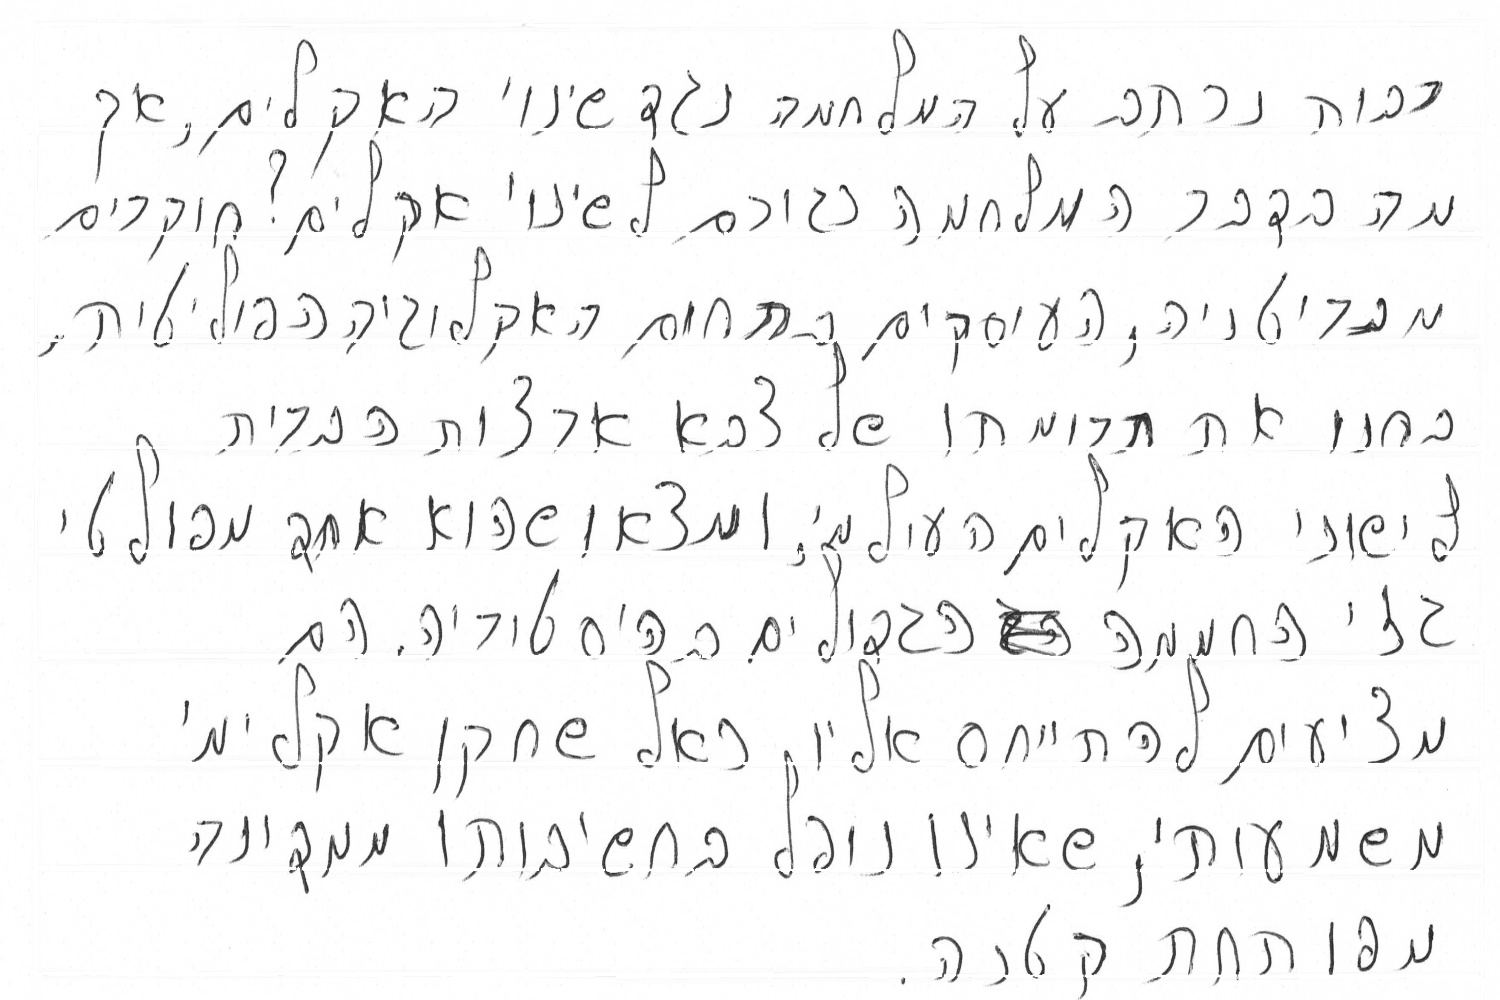 רבות נכתב על המלחמה נגד שינוי האקלים, אך
מה בדבר המלחמה כגורם לשינוי אקלים? חוקרים
מבריטניה, העוסקים בתחום האקלוגיה הפוליטית,
בחנו את תרומתו של צבא ארצות הברית
לישוני האקלים העולמי, ומצאו שהוא אחד מפולטי
גזי החממה הגבולים בהיסטוריה. הם
מציעים להתייחס אליו, כאל שחקן אקלימי
משמעותי, שאינו נופל בחשיבותו ממדינה
מפותחת קטנה.